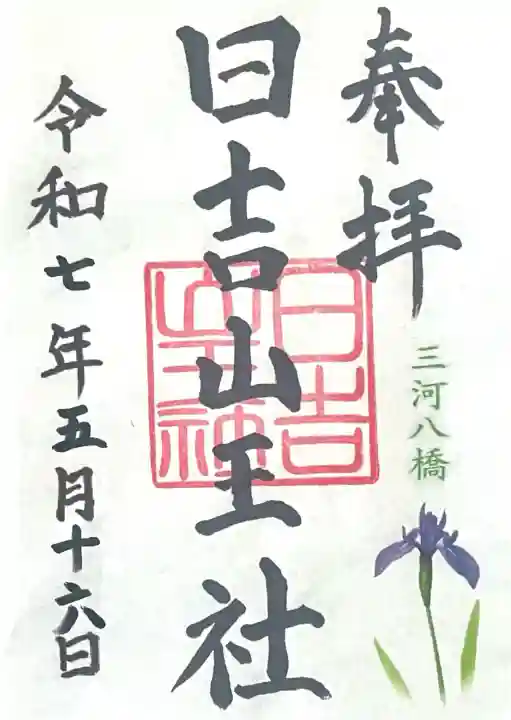 奉拝
三河八橋
日吉山王社
日吉
山王社
令和七年五月十六日